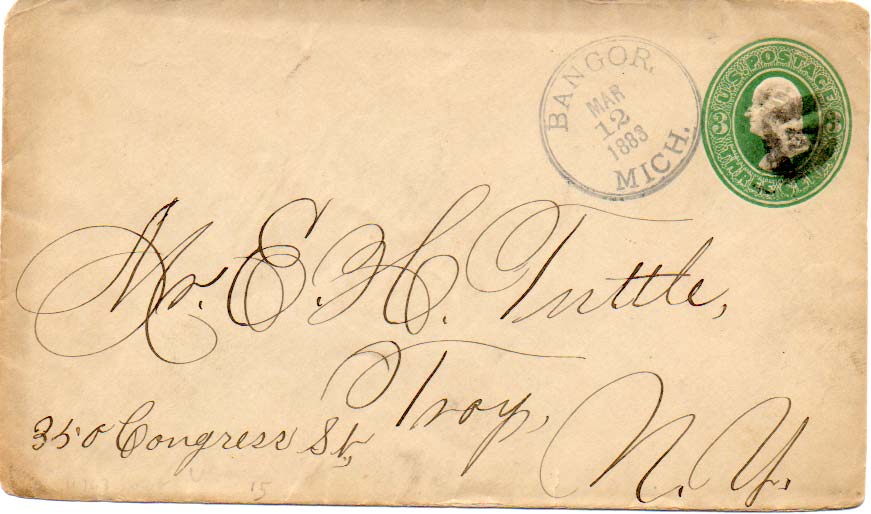 BANGOR.
MAR
12
1883
MICH.
U.S. POSTAGE
3 3
Mr. E. H. Tuttle,
Troy,
350 Congress St,
N. Y.
15